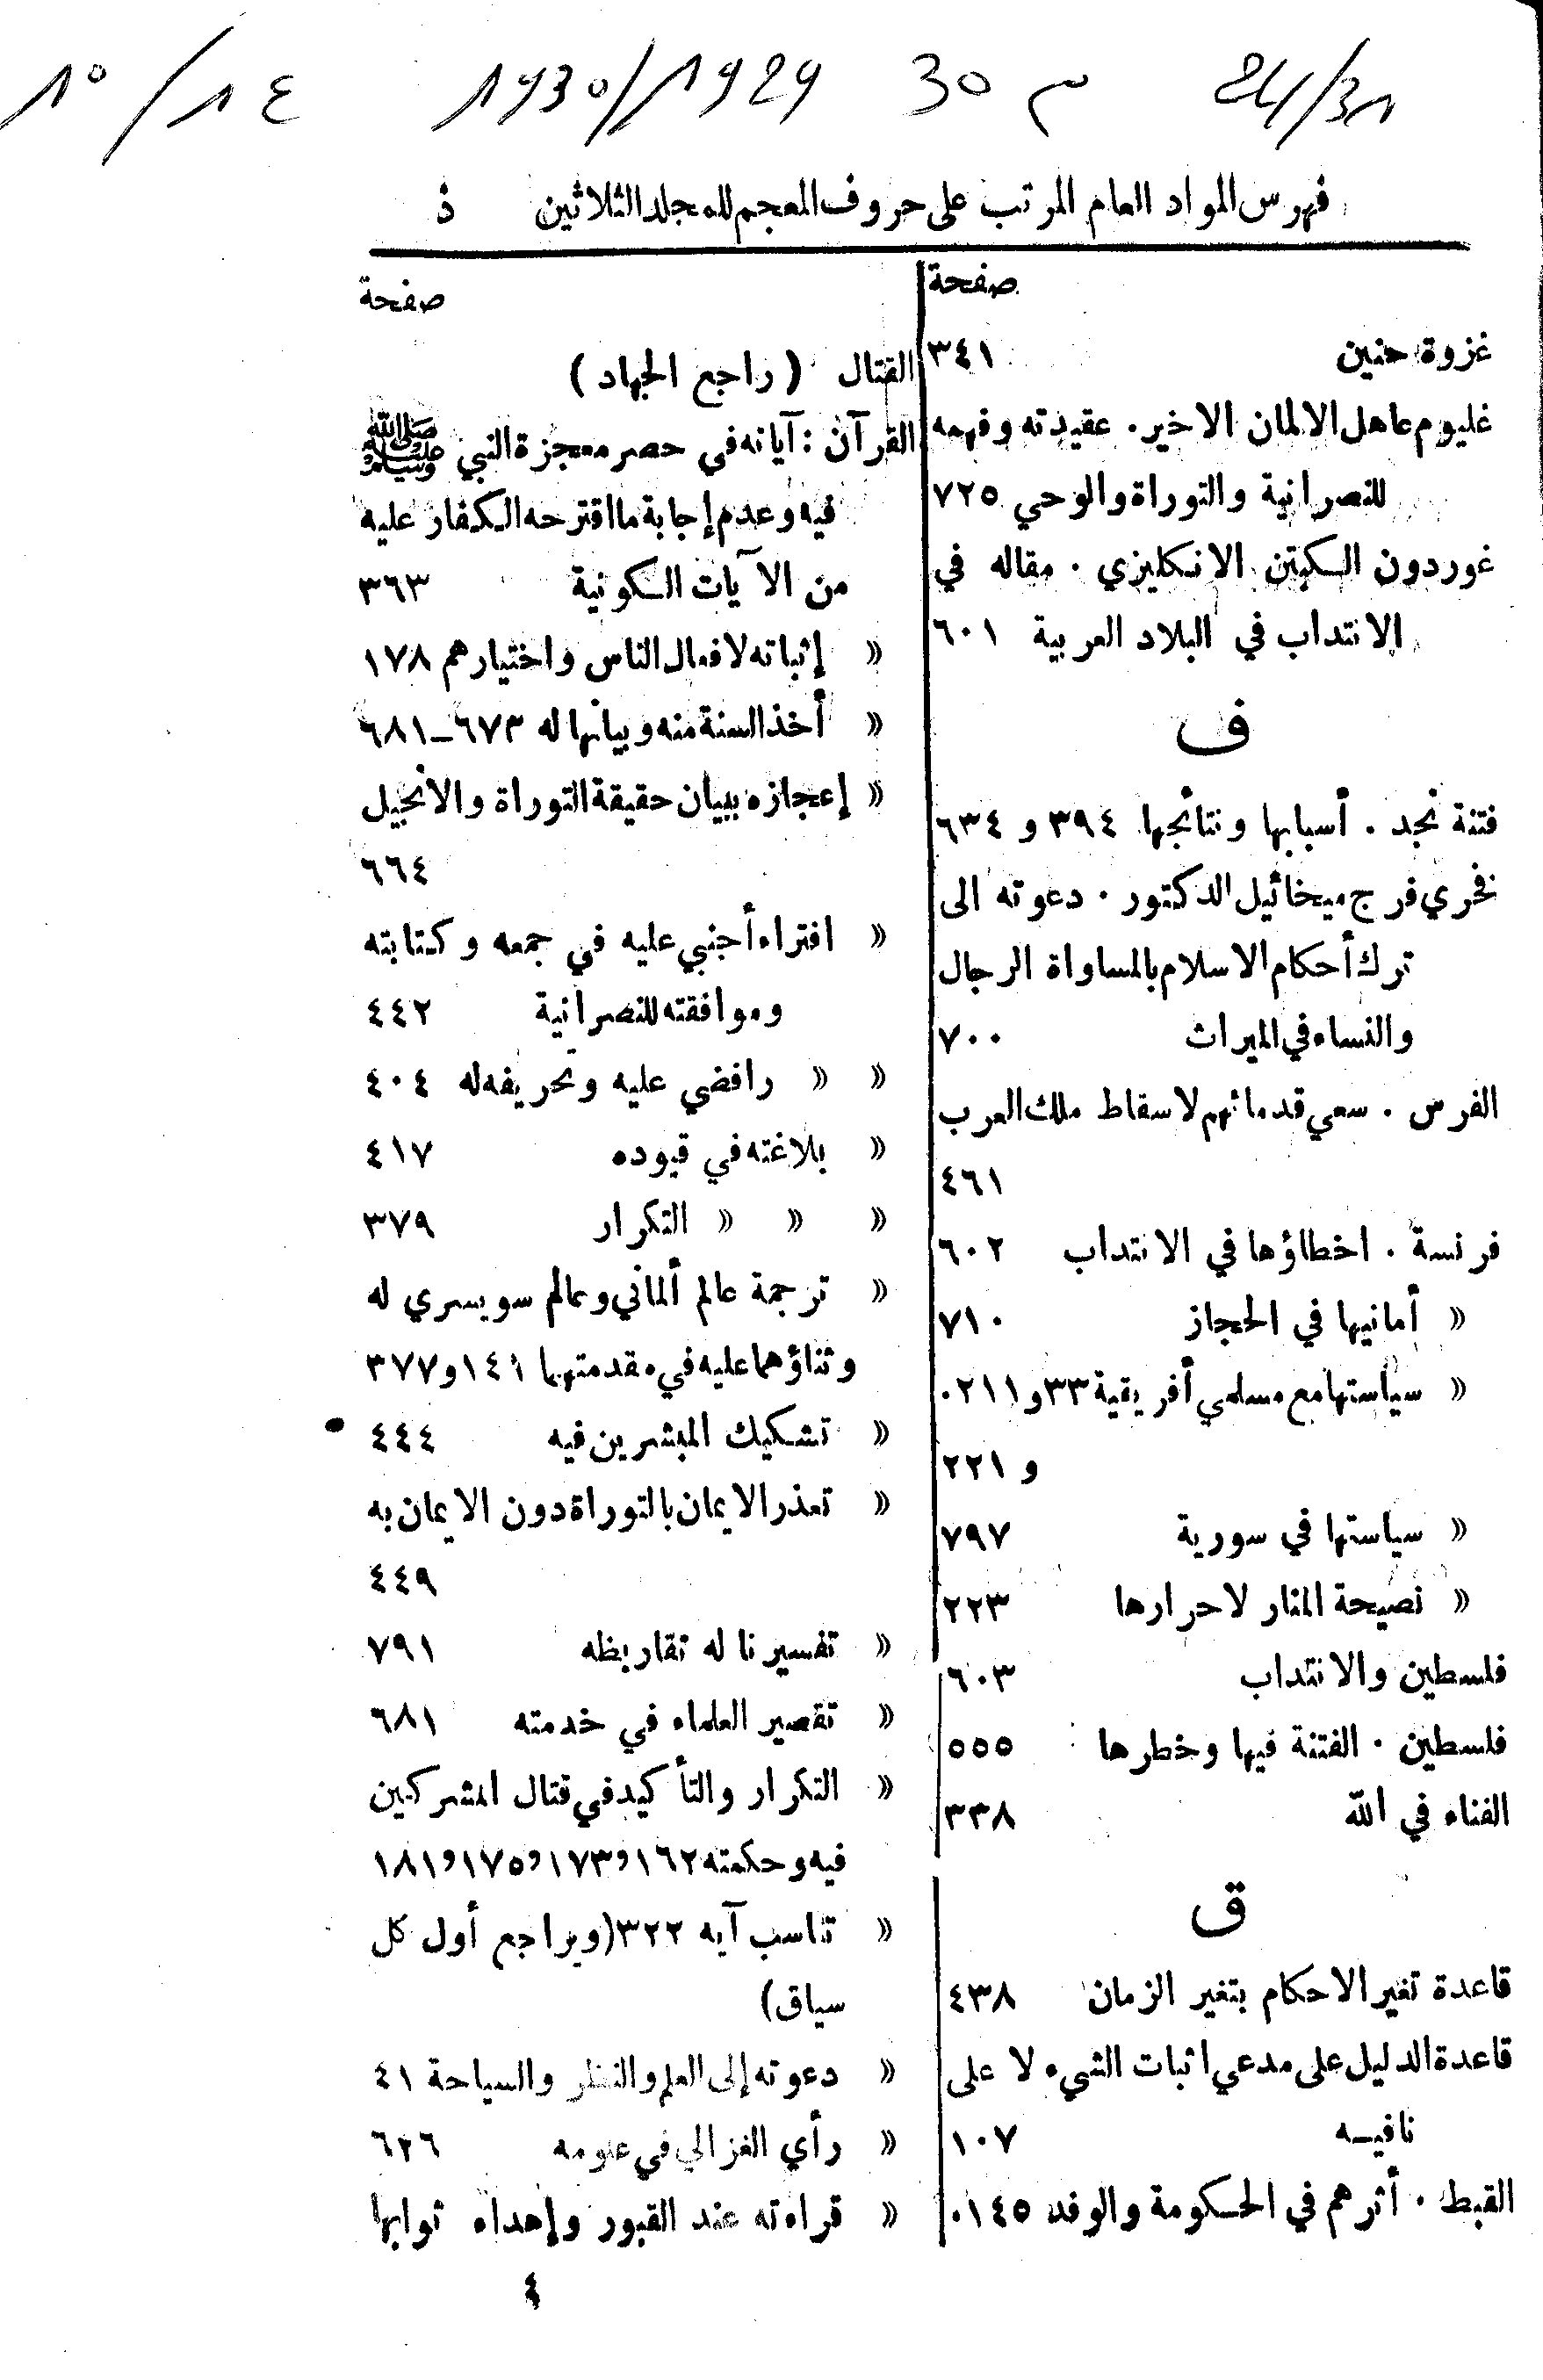 10/14 1930/1929 م 30 24/31
فهرس المواد العام المرتب على حروف المعجم للمجلد الثلاثين ذ
صفحة
غزوة حنين ٣٤١
غليوم عاهل الالمان الاخير . عقيدته وفهمه
للنصرانية والتوراة والوحي ٧٢٥
غوردون الكبتن الانكليزي . مقاله في
الانتداب في البلاد العربية ٦٠١
ف
فتنة نجد . أسبابها ونتائجها ٣٩٤ و ٦٣٤
فخري فرج ميخائيل الدكتور . دعوته الى
ترك أحكام الاسلام بالمساواة الرجال
والنساء في الميراث ٧٠٠
الفرس . سعي قدمائهم لاسقاط ملك العرب
٤٦١
فرنسة . اخطاؤها في الانتداب ٦٠٢
« أمانيها في الحجاز ٧١٠
« سياستها مع مسلمي أفريقية ٣٣ و ٢١١.
و ٢٢١
« سياستها في سورية ٧٩٧
« نصيحة المنار لاحرارها ٢٢٣
فلسطين والانتداب ٦٠٣
فلسطين . الفتنة فيها وخطرها ٥٥٥
الفناء في الله ٣٣٨
ق
قاعدة تغير الاحكام بتغير الزمان ٤٣٨
قاعدة الدليل على مدعي اثبات الشيء لا على
نافيه ١٠٧
القبط . أثرهم في الحكومة والوفد ١٤٥.
صفحة
القتال ( راجع الجهاد )
القرآن : آياته في حصر معجزة النبي ﷺ
فيه وعدم إجابة ما اقترحه الكفار عليه
من الآيات الكونية ٣٦٣
« إثباته لافعال الناس واختيارهم ١٧٨
« أخذ السنة منه وبيانها له ٦٧٣ـ٦٨١
« إعجازه ببيان حقيقة التوراة والانجيل
٦٦٤
« افتراء أجنبي عليه في جمعه وكتابته
وموافقته للنصرانية ٤٤٢
« « رافضي عليه وتحريفه له ٤٠٤
« بلاغته في قيوده ٤١٧
« « « التكرار ٣٧٩
« ترجمة عالم ألماني وعالم سويسري له
وثناؤهما عليه في مقدمتهما ١٤١ و ٣٧٧
« تشكيك المبشرين فيه ٤٤٤
« تعذر الايمان بالتوراة دون الايمان به
٤٤٩
« تفسيرنا له تقاريظه ٧٩١
« تقصير العلماء في خدمته ٦٨١
« التكرار والتأكيد في قتال المشركين
فيه وحكمته ١٦٢ و ١٧٣ و ١٧٥ و ١٨١
« تناسب آيه ٣٢٢ (ويراجع أول كل
سياق)
« دعوته إلى العلم والنظر والسياحة ٤١
« رأي الغزالي في علومه ٦٢٦
« قراءته عند القبور وإهداء ثوابها
٤